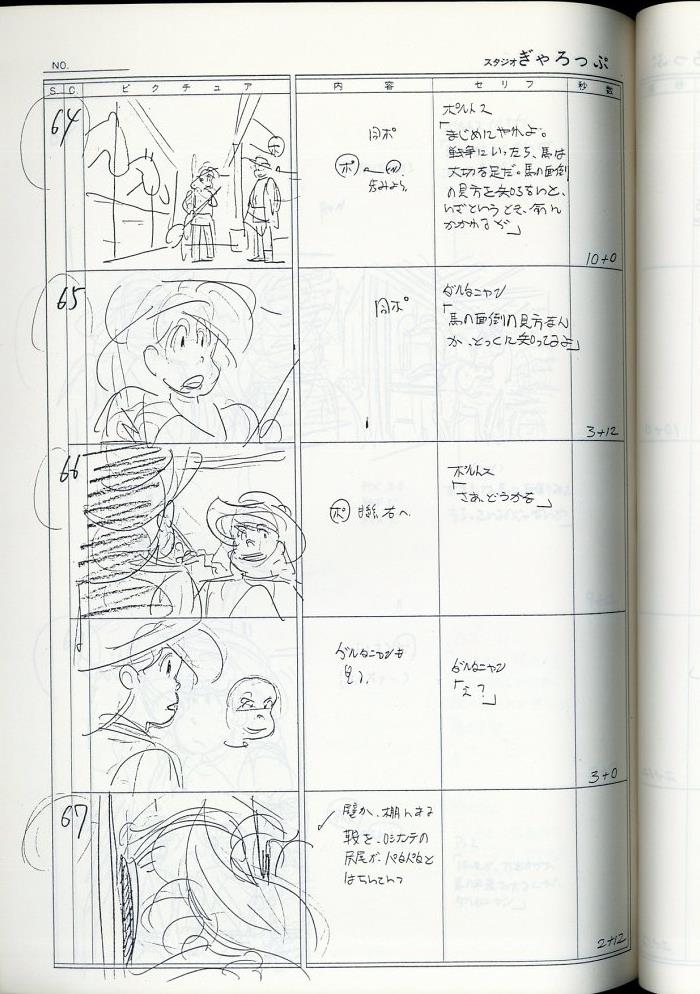 NO.
スタジオぎゃろっぷ
S. C. ピクチュア 内容 セリフ 秒数
64
同ポ
ポ
ポ
ポルトス
「まじめにやれよ。
戦争にいったら、馬は
大切な足だ。馬の面倒
の見方を知らないと、
いざというとき、
10+0
65
同ポ
ダルタニャン
「馬の面倒の見方なん
か、とっくに知ってるよ」
3+12
66
ポ 目線、右へ。
ポルトス
「さあ、どうかな」
ダルタニャンも
見る。
ダルタニャン
「え?」
3+0
67
壁か、棚にある
鞍を、ロシナンテの
尻尾が、パタパタと
はたいている
2+12